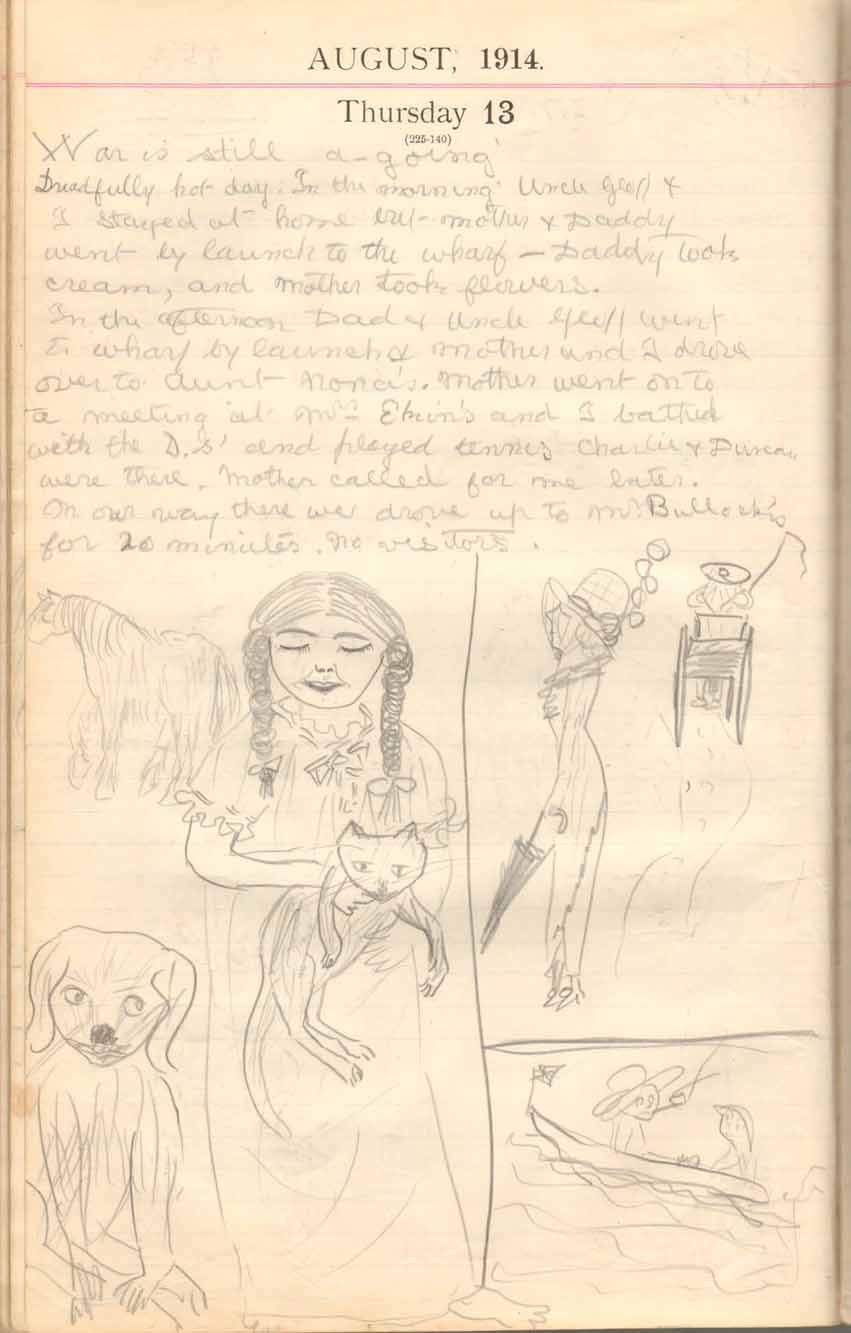 AUGUST, 1914.
Thursday 13
(225-140)
War is still a-going
Dreadfully hot day. In the morning Uncle Geoff &
I stayed at home but mother & Daddy
went by launch to the wharf – Daddy took
cream, and mother took flowers.
In the afternoon Dad & Uncle Geoff went
to wharf by launch & mother and I drove
over to Aunt Nona's. Mother went on to
a meeting at Mrs Ekin's and I bathed
with the D.S' and played tennis Charlie & Duncan
were there. Mother called for me later.
On our way there we drove up to Mrs Bullock's
for 20 minutes. No visitors.